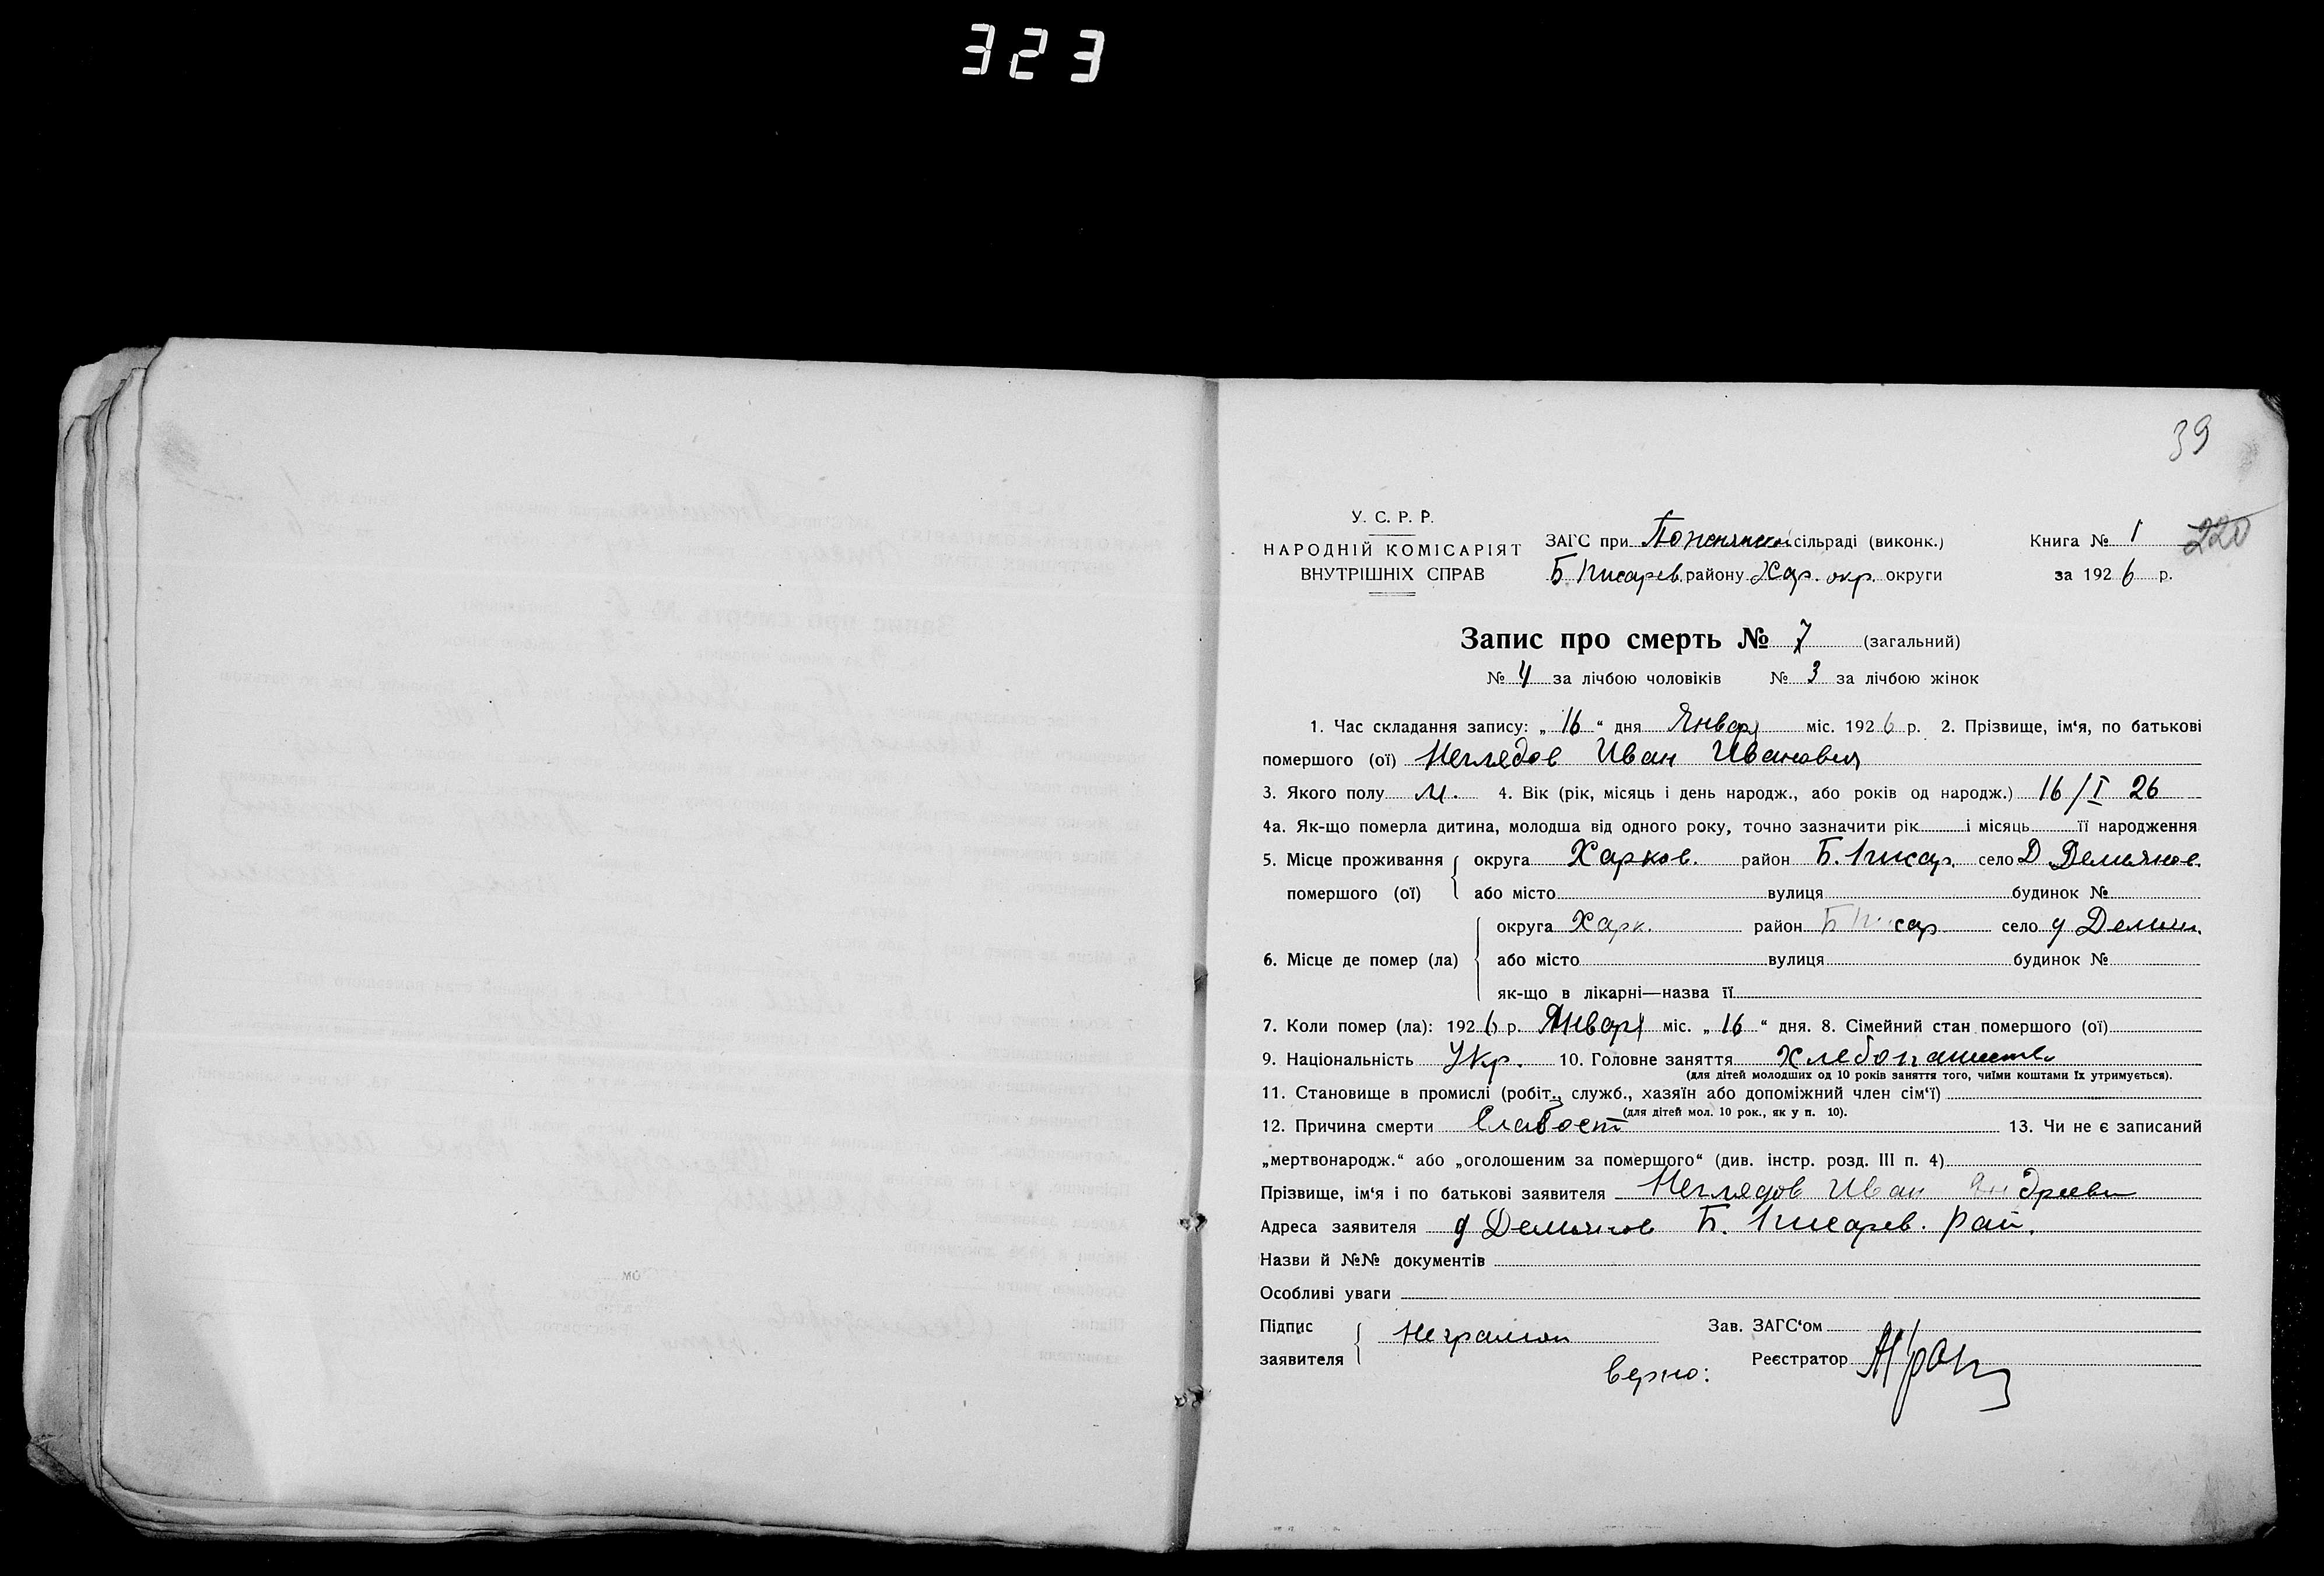 323
39
У. С. Р. Р.
НАРОДНІЙ КОМІСАРІЯТ
ВНУТРІШНІХ СПРАВ
ЗАГС при сільраді (виконк.)
Б Писарев. району Хар. окр. округи
Книга № 1
220
за 1926 р.
Запис про смерть № 7 (загальний)
№ 4 за лічбою чоловіків № 3 за лічбою жінок
1. Час складання запису: „16“ дня Января міс. 1926 р. 2. Прізвище, ім‘я, по батькові
помершого (ої) Неглядов Иван Иванович
3. Якого полу м. 4. Вік (рік, місяць і день народж., або років од народж.) 16/I 26
4а. Як-що померла дитина, молодша від одного року, точно зазначити рік і місяць її народження
5. Місце проживання помершого (ої) округа Харков. район Б. Писар. село Д Демянов
або місто вулиця будинок №
6. Місце де помер (ла) округа Харк. район Б Писар село д Демян.
або місто вулиця будинок №
як-що в лікарні—назва її
7. Коли помер (ла): 1926 р. Января міс. „16“ дня. 8. Сімейний стан помершого (ої)
9. Національність Укр. 10. Головне заняття Хлебопашеств
(для дітей молодших од 10 років заняття того, чиїми коштами їх утримується).
11. Становище в промислі (робіт., служб., хазяїн або допоміжний член сім‘ї)
(для дітей мол. 10 рок., як у п. 10).
12. Причина смерти Слабост 13. Чи не є записаний
„мертвонародж.“ або „оголошеним за помершого“ (див. інстр. розд. III п. 4)
Прізвище, ім‘я і по батькові заявителя Неглядов Иван Андреевич
Адреса заявителя д Демянов Б. Писарев. рай.
Назви й №№ документів
Особливі уваги
Підпис заявителя Неграмот
Зав. ЗАГС‘ом
верно: Реєстратор